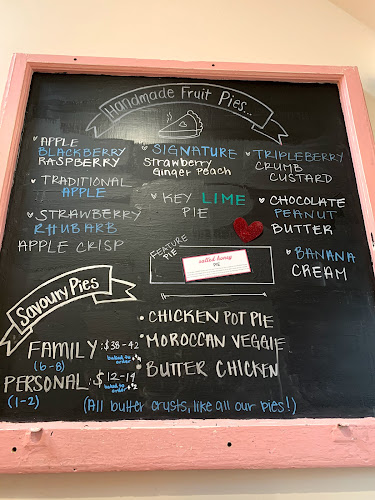 Handmade Fruit Pies...
APPLE
BLACKBERRY
RASPBERRY
TRADITIONAL
APPLE
STRAWBERRY
RHUBARB
APPLE CRISP
SIGNATURE
Strawberry
Ginger Peach
KEY LIME
PIE
TRIPLEBERRY
CRUMB
CUSTARD
CHOCOLATE
PEANUT
BUTTER
BANANA
CREAM
FEATURE
PIE
salted honey
PIE
Savoury Pies
FAMILY: $38-42
(6-8)
baked to
order
PERSONAL: $12-14
(1-2)
baked to
order
CHICKEN POT PIE
MOROCCAN VEGGIE
BUTTER CHICKEN
(All butter crusts, like all our pies!)